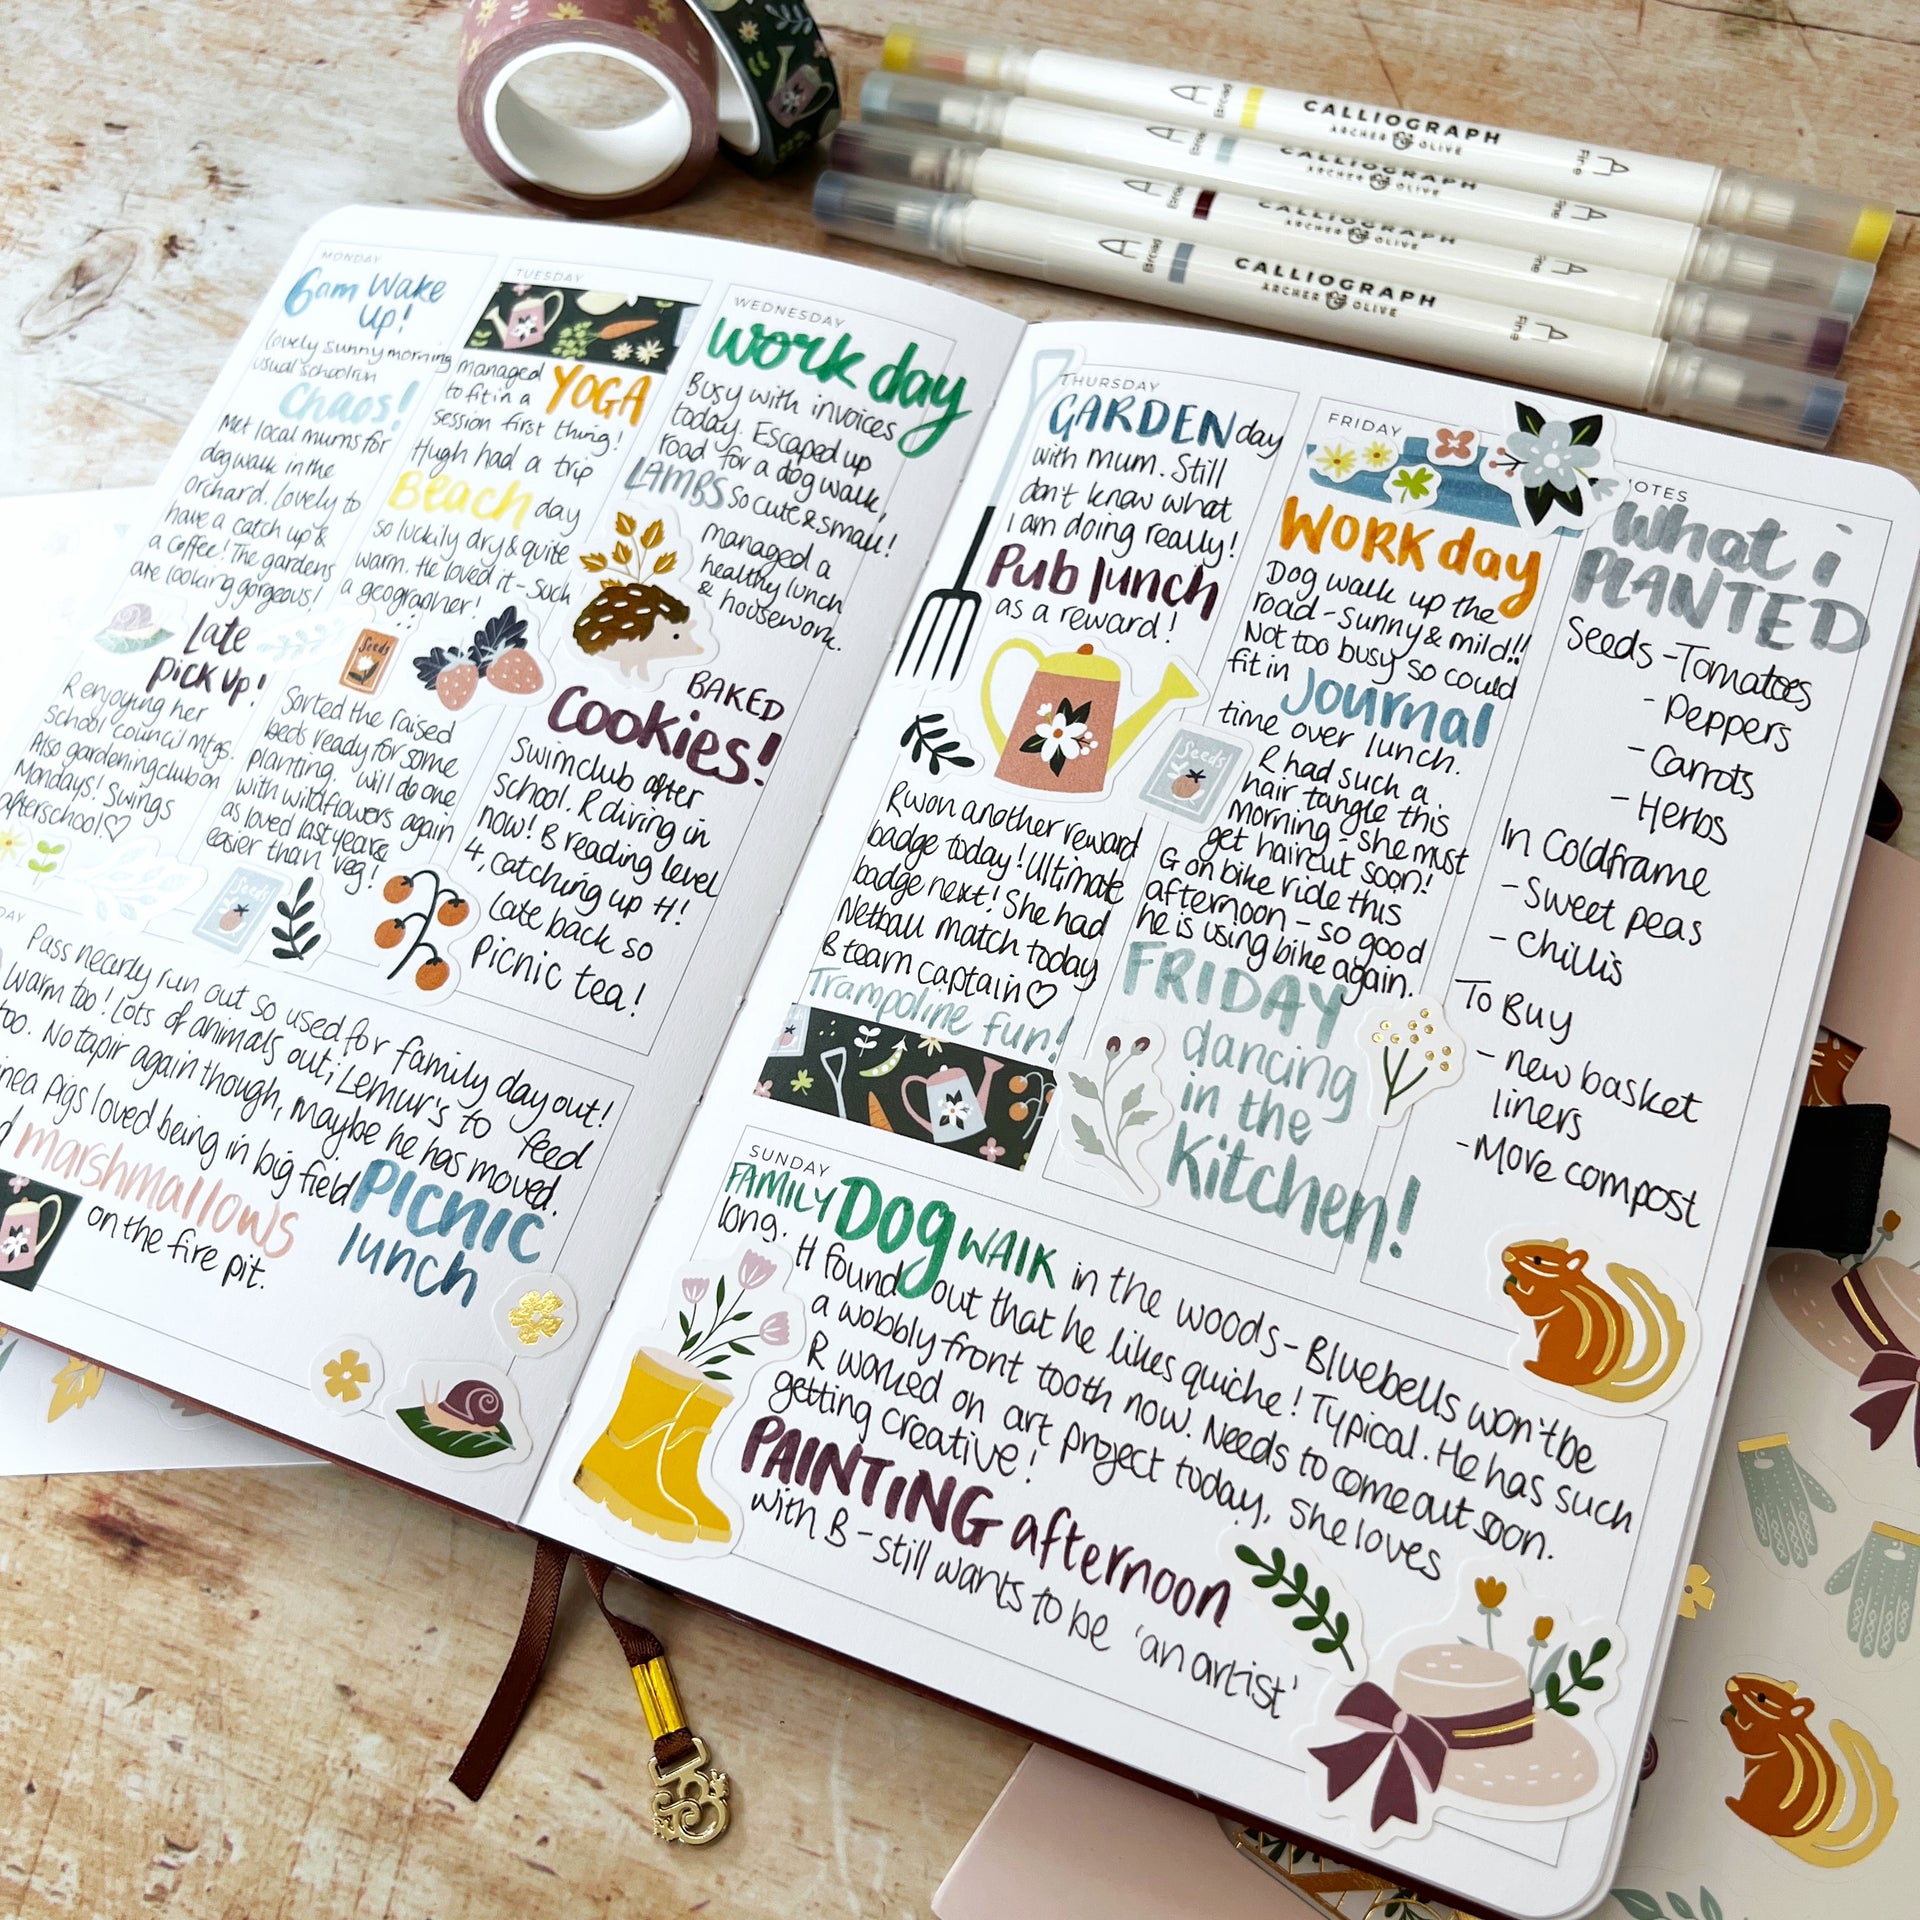 CALLIOGRAPH
ARCHER & OLIVE
A Broad
A Fine
CALLIOGRAPH
ARCHER & OLIVE
A Broad
A Fine
CALLIOGRAPH
ARCHER & OLIVE
A Broad
A Fine
CALLIOGRAPH
ARCHER & OLIVE
A Broad
A Fine
MONDAY
6am Wake
up!
lovely sunny morning
usual school run
Chaos!
Met local mums for
dog walk in the
orchard. Lovely to
have a catch up &
a coffee! The gardens
are looking gorgeous!
Late
pick up!
R enjoying her
school council mtgs.
Also gardening club on
Mondays! Swings
afterschool ♡
TUESDAY
managed
to fit in a YOGA
session first thing!
Hugh had a trip
Beach day
so luckily dry & quite
warm. He loved it - such
a geographer!
Seeds
Sorted the raised
beds ready for some
planting. Will do one
with wildflowers again
as loved last years &
easier than veg!
Seeds
WEDNESDAY
work day
Busy with invoices
today. Escaped up
road for a dog walk,
LAMBS so cute & small!
managed a
healthy lunch
& housework.
BAKED
Cookies!
Swimclub after
school. R diving in
now! B reading level
4, catching up H!
Late back so
picnic tea!
DAY
Pass nearly run out so used for family day out!
warm too! Lots of animals out; Lemur's to feed
too. No tapir again though, maybe he has moved.
nea pigs loved being in big field PICNIC
lunch
marshmallows
on the fire pit.
THURSDAY
GARDEN day
with mum. Still
don't know what
I am doing really!
Pub lunch
as a reward!
R won another reward
badge today! Ultimate
badge next! She had
Netball match today
B team captain ♡
Trampoline fun!
FRIDAY
WORK day
Dog walk up the
road - sunny & mild!!
Not too busy so could
fit in Journal
time over lunch.
Seeds
R had such a
hair tangle this
morning - she must
get haircut soon!
G on bike ride this
afternoon - so good
he is using bike again.
FRIDAY
dancing
in the
Kitchen!
NOTES
What i
PLANTED
Seeds - Tomatoes
- Peppers
- Carrots
- Herbs
In Coldframe
- Sweet peas
- Chillis
To Buy
- new basket
liners
- More compost
SUNDAY
FAMILY Dog WALK in the woods - Bluebells won't be
long. H found out that he likes quiche! Typical. He has such
a wobbly front tooth now. Needs to come out soon.
R worked on art project today, she loves
getting creative!
PAINTING afternoon
with B - still wants to be 'an artist'